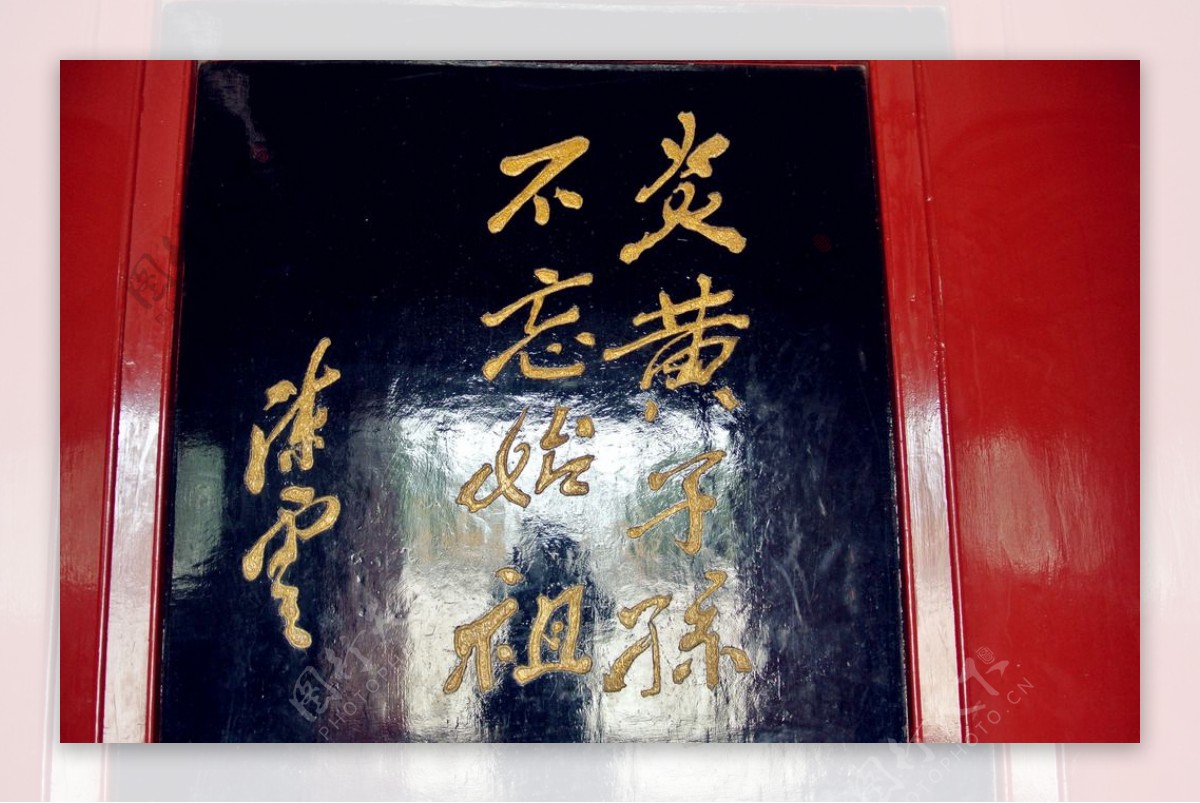 炎黄子孫
不忘始祖
陳雲
图行天下 PHOTOPHOTO.CN